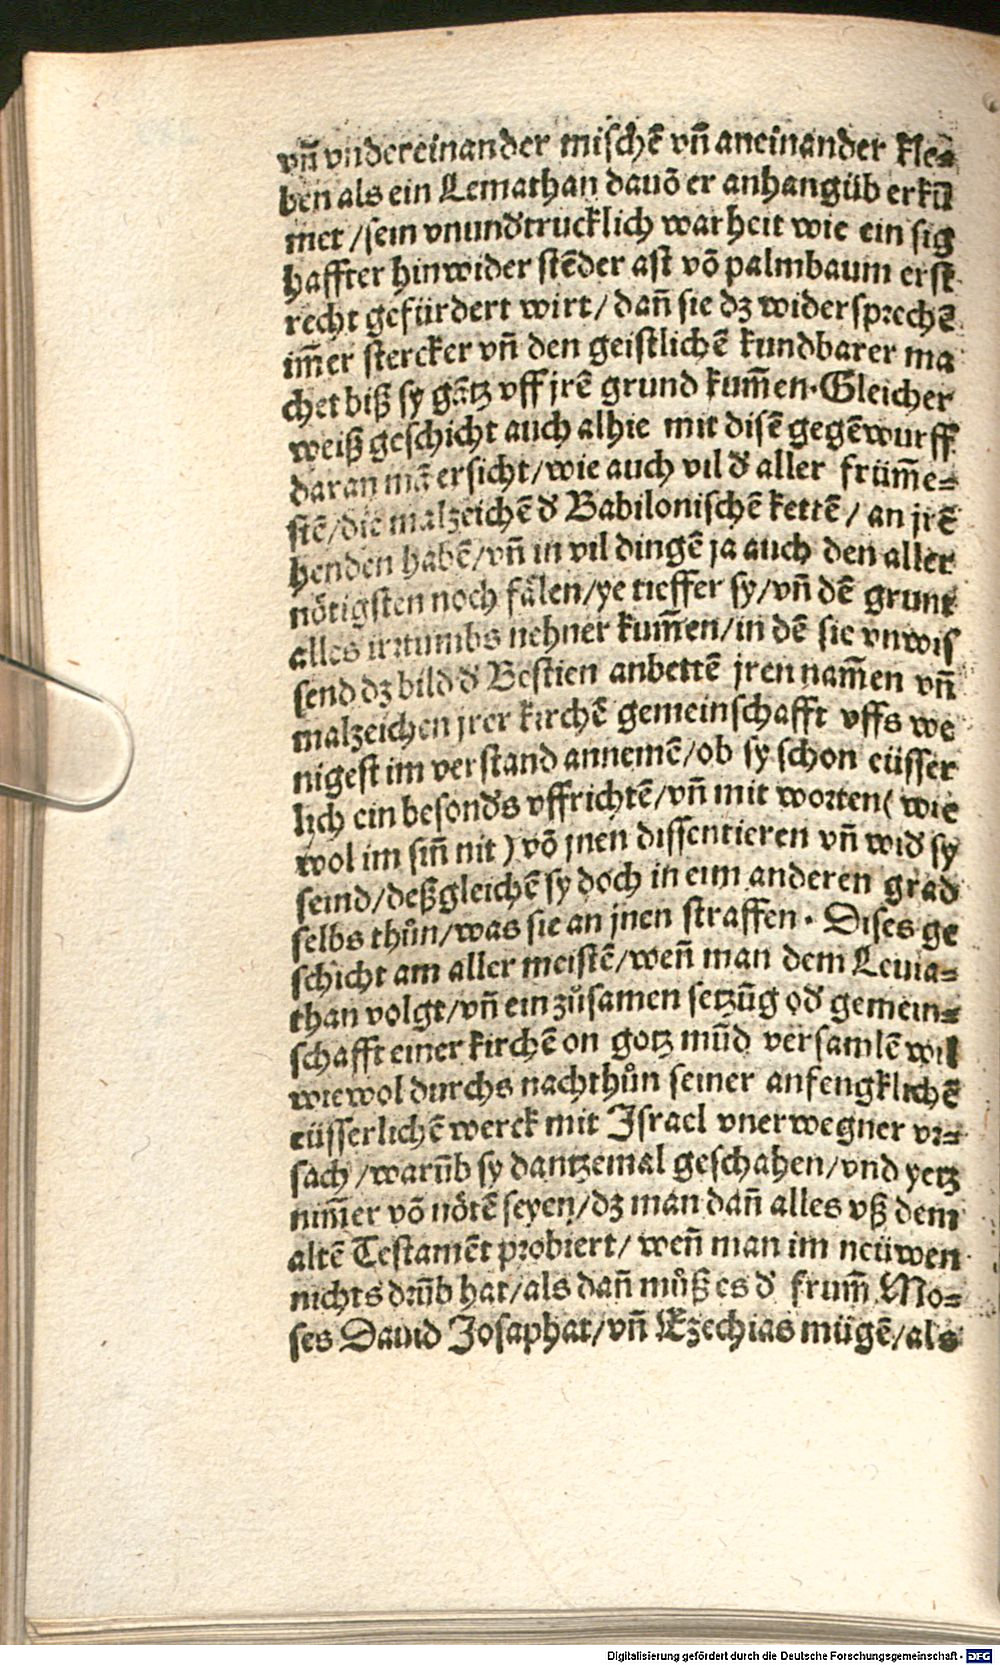 vñ vndereinander mischẽ vñ aneinander kle⸗
ben als ein Leuiathan dauõ er anhangüb erkũ
met /sein vnundtrucklich warheit wie ein sig
haffter hinwider stẽder ast võ palmbaum erst
recht gefürdert wirt/ dañ sie dz widersprechẽ
im̃er stercker vñ den geistlichẽ kundbarer ma
chet biß sy gãtz vff jrẽ grund kum̃en. Gleicher
weiß geschicht auch alhie mit disẽ gegẽwurff
daran mã ersicht/wie auch vil đ aller früm̃e⸗
stẽ/die malzeichẽ đ Babilonischẽ kettẽ/ an jrẽ
henden habẽ/vñ in vil dingẽ ja auch den aller
nötigsten noch fälen/ye tieffer sy/vñ dẽ grunt
alles irrtumbs nehner kum̃en/in dẽ sie vnwis
send dz bild đ Bestien anbettẽ jren nam̃en vñ
malzeichen jrer kirchẽ gemeinschafft vffs we
nigest im verstand annemẽ/ob sy schon eüsser
lich ein besonđs vffrichtẽ/vñ mit worten( wie
wol im siñ nit ) võ jnen dissentieren vñ wiđ sy
seind/deßgleichẽ sy doch in eim anderen grad
selbs thůn/was sie an jnen straffen. Dises ge
schicht am aller meistẽ/weñ man dem Leuia⸗
than volgt/vñ ein zůsamen setzũg ođ gemein⸗
schafft einer kirchẽ on gotz mũd versamlẽ wil
wiewol durchs nachthůn seiner anfengklichẽ
eüsserlichẽ werck mit Israel vnerwegner vr⸗
sach /warũb sy dantzemal geschahen/vnd yetz
nim̃er võ nötẽ seyen/dz man dañ alles vß dem
altẽ Testamẽt probiert/ weñ man im neüwen
nichts drũb hat/als dañ můß es đ frum̃ Mo⸗
ses Dauid Josaphat/vñ Ezechias mügẽ/als
Digitalisierung gefördert durch die Deutsche Forschungsgemeinschaft - DFG